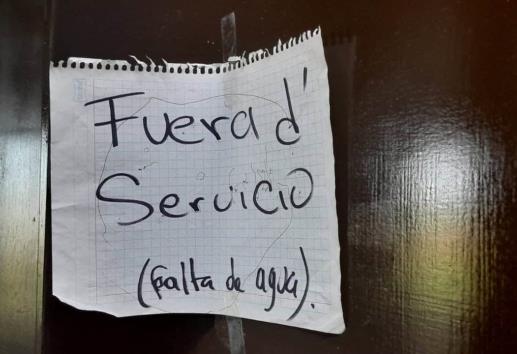 Fuera d'
Servicio
(falta de agua).